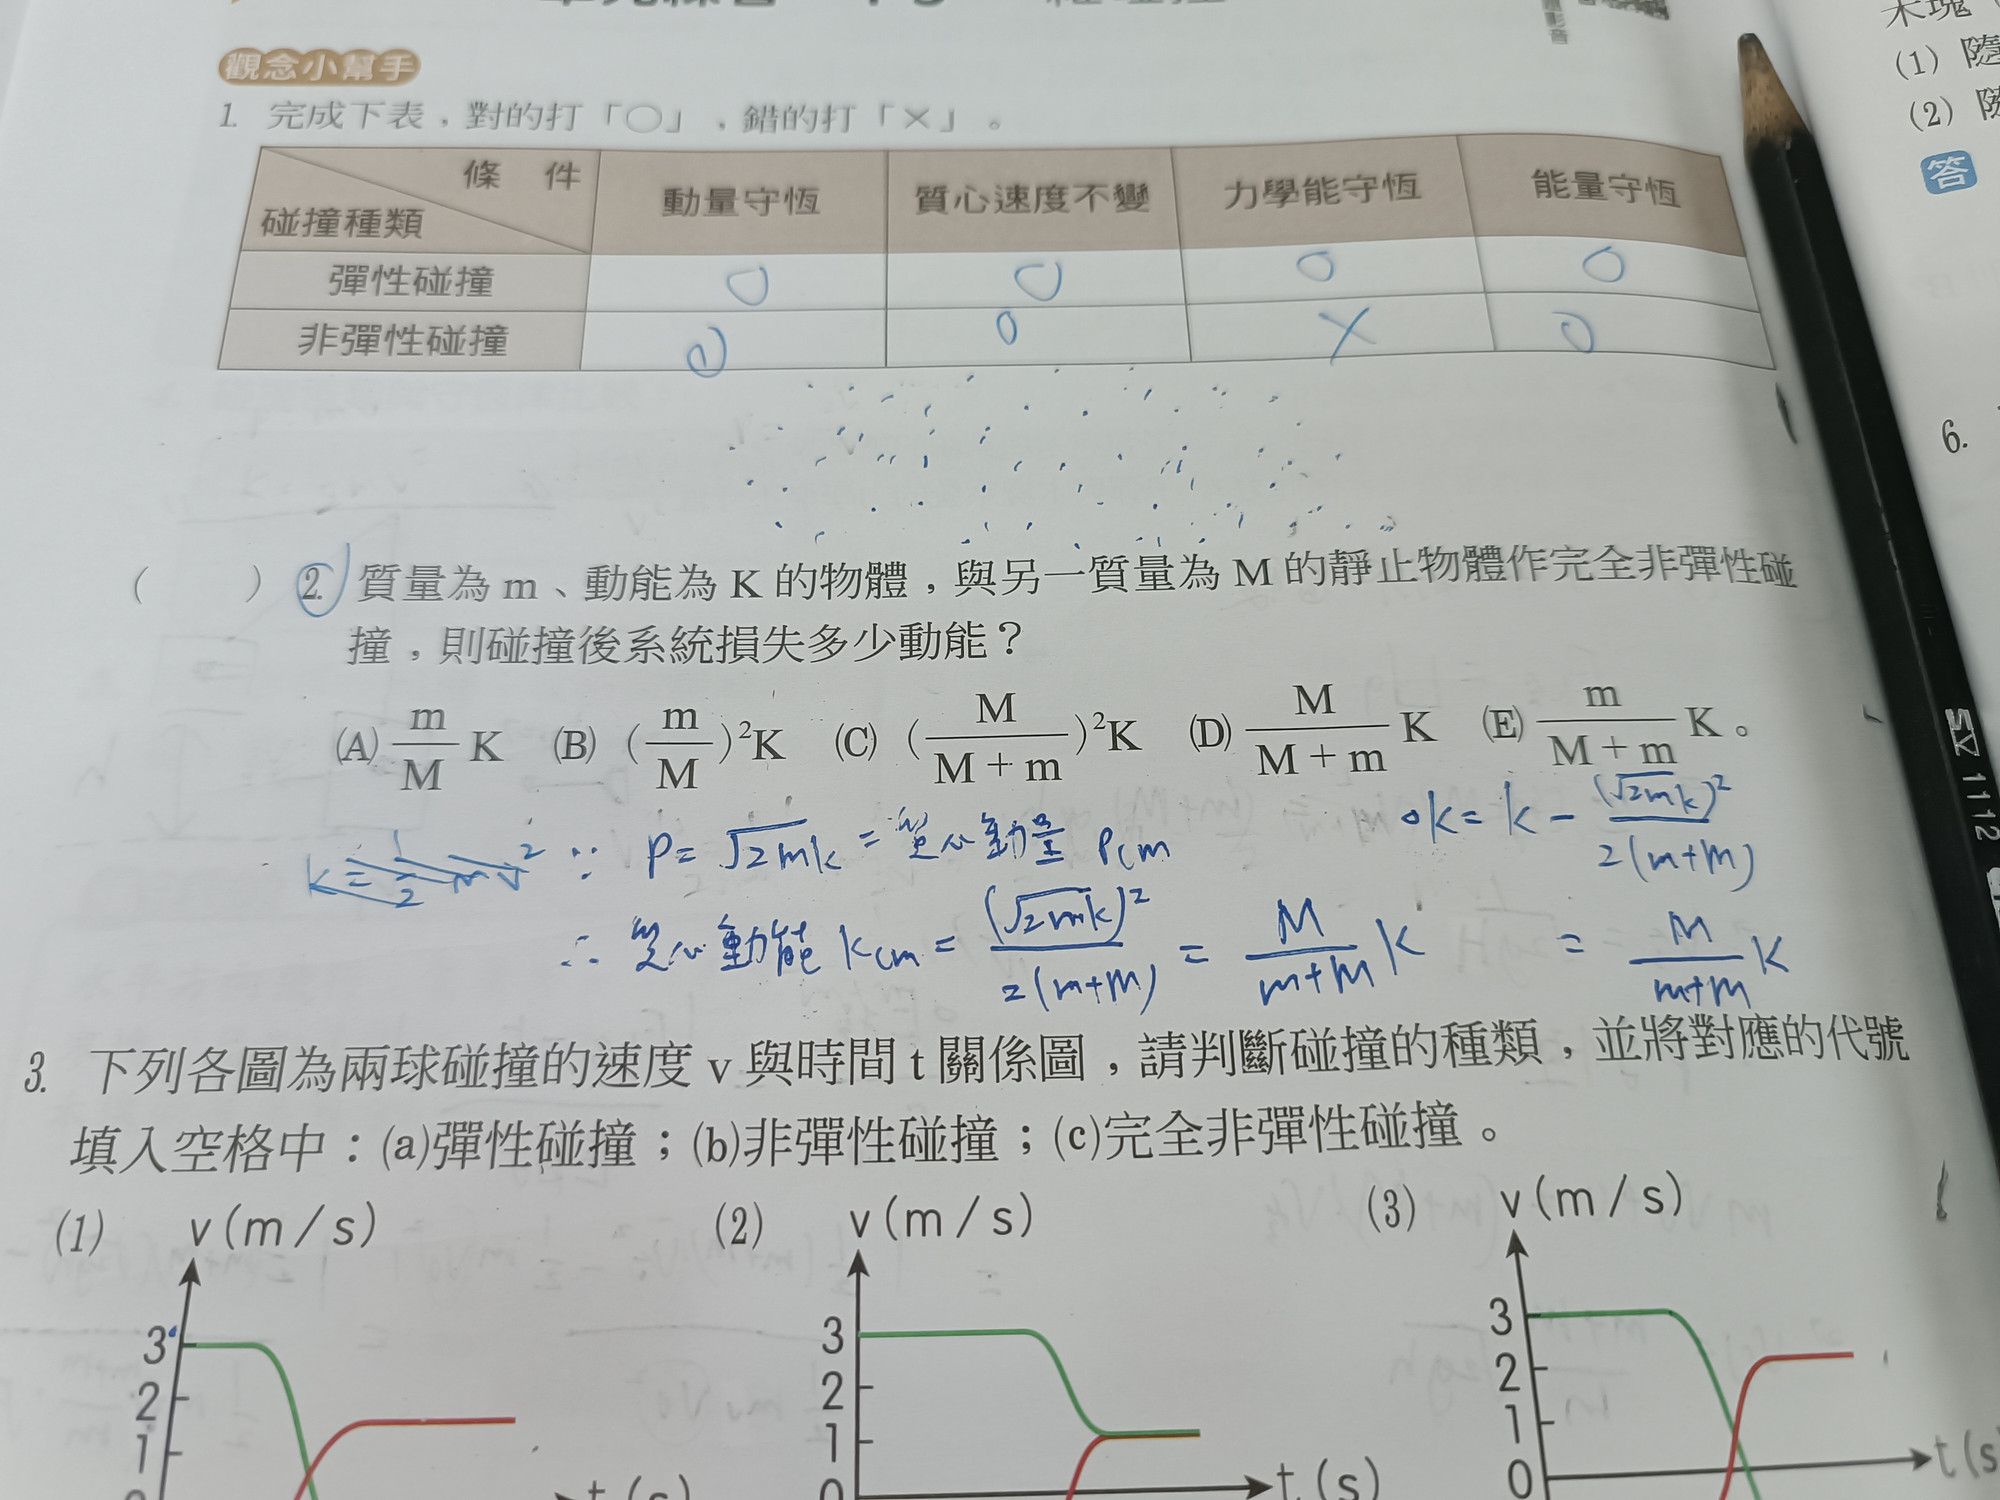 觀念小幫手
1. 完成下表，對的打「○」，錯的打「×」。
條 件
碰撞種類
動量守恆 質心速度不變 力學能守恆 能量守恆
彈性碰撞 ○ ○ ○ ○
非彈性碰撞 ○ ○ × ○
( ) 2. 質量為 m、動能為 K 的物體，與另一質量為 M 的靜止物體作完全非彈性碰
撞，則碰撞後系統損失多少動能？
(A) m/M K (B) (m/M)²K (C) (M/(M+m))²K (D) M/(M+m) K (E) m/(M+m) K。
k = 1/2 mv² ∵ P = √2mk = 質心動量 Pcm
∴ 質心動能 kcm = (√2mk)²/2(m+M) = M/(m+M) K
△k = k - (√2mk)²/2(m+M)
= M/(m+M) K
3. 下列各圖為兩球碰撞的速度 v 與時間 t 關係圖，請判斷碰撞的種類，並將對應的代號
填入空格中：(a)彈性碰撞；(b)非彈性碰撞；(c)完全非彈性碰撞。
(1) v(m/s)
3
2
1
0
t(s)
(2) v(m/s)
3
2
1
0
t(s)
(3) v(m/s)
3
2
1
0
t(s
木塊
(1) 隨
(2) 隨
答
6.
1112